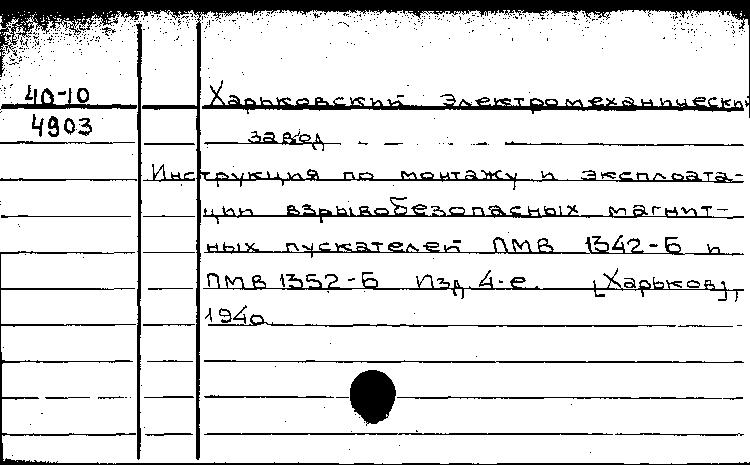 40-10
4903
Харьковский электромеханический
завод
Инструкция по монтажу и эксплоата-
ции взрывобезопасных магнит-
ных пускателей ПМВ 1342-Б и
ПМВ 1352-Б Изд. 4-е. [Харьков],
1940